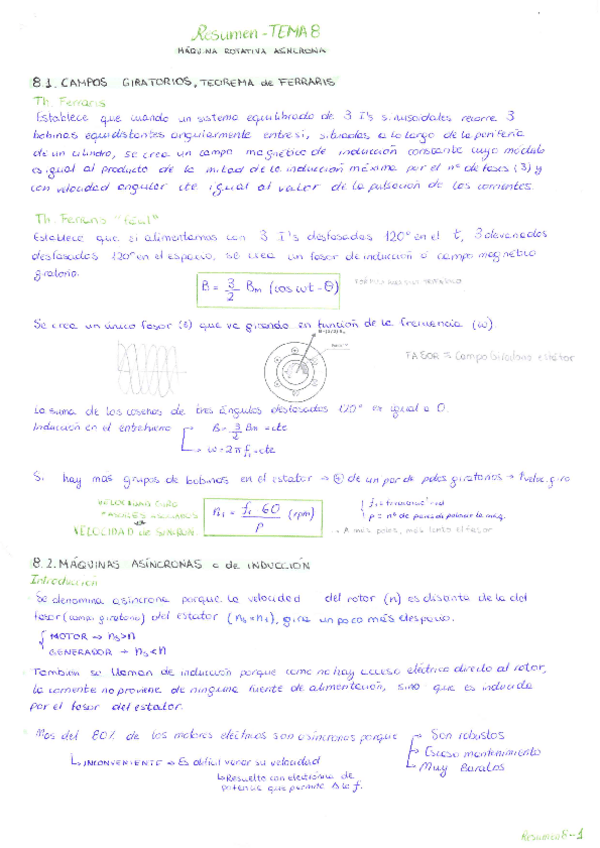 Resumen - TEMA 8
MÁQUINA ROTATIVA ASÍNCRONA
8.1. CAMPOS GIRATORIOS, TEOREMA de FERRARIS
Th. Ferraris
Establece que cuando un sistema equilibrado de 3 I's sinusoidales recorre 3
bobinas equidistantes angularmente entre sí, situadas a lo largo de la periferia
de un cilindro, se crea un campo magnético de inducción constante cuyo módulo
es igual al producto de la mitad de la inducción máxima por el nº de fases (3) y
con velocidad angular cte igual al valor de la pulsación de las corrientes.
Th. Ferraris "fácil"
Establece que si alimentamos con 3 I's desfasadas 120° en el t, 3 devanados
desfasados 120° en el espacio, se crea un fasor de inducción o campo magnético
giratorio.
B = 3/2 Bm (cos wt - θ)
Se crea un único fasor (B) que va girando en función de la frecuencia (w).
FASOR = Campo Giratorio estátor
La suma de los cosenos de tres ángulos desfasados 120° es igual a 0.
Inducción en el entrehierro
B = 3/2 Bm = cte
w = 2π f = cte
Si hay más grupos de bobinas en el estator → de un par de polos giratorios → veloc. giro
VELOCIDAD GIRO
VELOCIDAD de SINCRON.
n1 = f1 60 / P (rpm)
p = nº de pares de polos de la máq.
→ A más polos, más lento el fasor
8.2. MÁQUINAS ASÍNCRONAS o de INDUCCIÓN
Introducción
Se denomina asíncrona porque la velocidad del rotor (n) es distinta de la del
fasor (campo giratorio) del estator (ns=n1), gira un poco más despacio.
MOTOR → ns>n
GENERADOR → ns<n
También se llaman de inducción porque como no hay acceso eléctrico directo al rotor,
la corriente no proviene de ninguna fuente de alimentación, sino que es inducida
por el fasor del estator.
Mas del 80% de los motores eléctricos son asíncronos porque
Son robustos
Escaso mantenimiento
Muy Baratos
INCONVENIENTE → Es difícil variar su velocidad
Resuelto con electrónica de
potencia que permite Δ la f.
Resumen 8-1